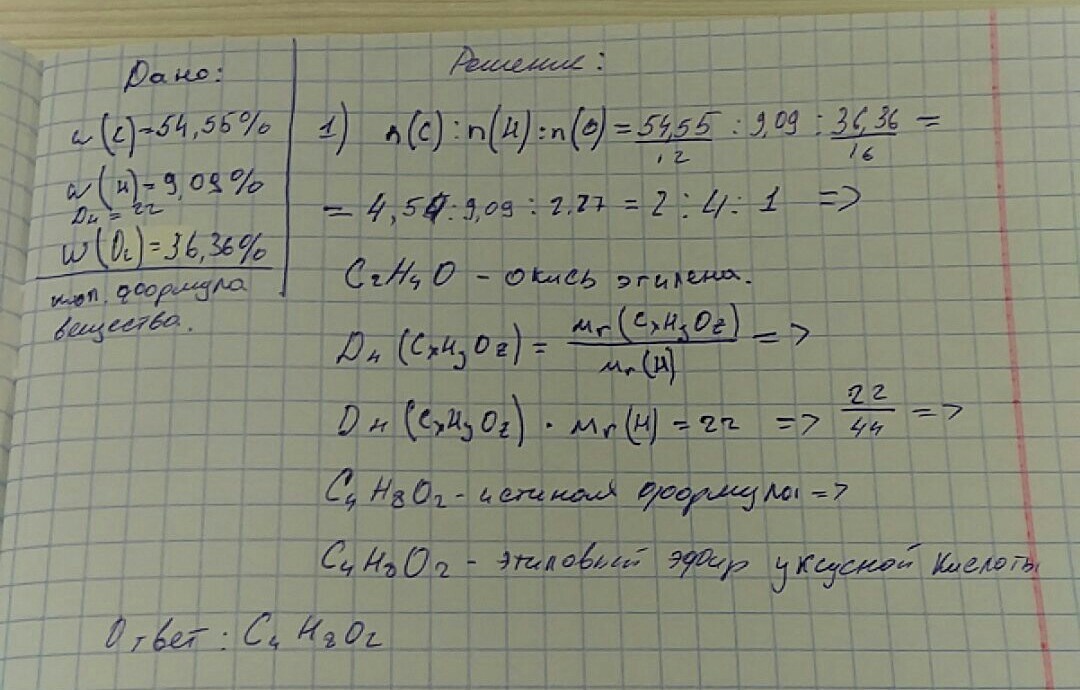 Дано:
w(C)=54,55%
w(H)=9,09%
Dн = 22
w(O₂)=36,36%
мол. формула
вещества.
Решение:
1) n(C):n(H):n(O)=54,55/12 : 9,09 : 36,36/16 =
= 4,54:9,09:2.27 = 2:4:1 =>
C₂H₄O - окись этилена.
Dн (CxHyOz) = Mr(CxHyOz)/Mr(H) =>
Dн (CxHyOz) · Mr(H) = 22 => 22/44 =>
C₄H₈O₂ - истиная формула =>
C₄H₈O₂ - этиловый эфир уксусной кислоты
Ответ: C₄H₈O₂